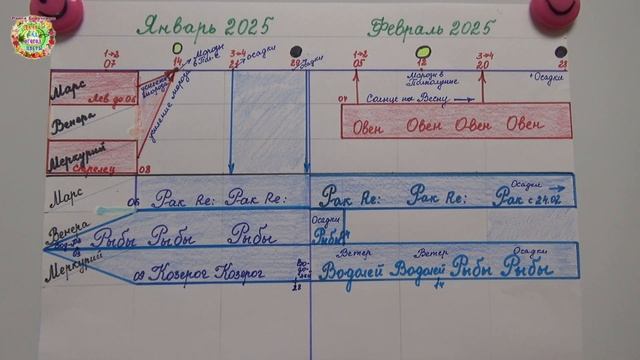 Январь 2025 Февраль 2025
1→2 3→4 Осадки 1→2 3→4
07 14 21 29 05 12 20 28
Морозы в Полнолуние
+Осадки
Марс
Лев до 06
усиление мороза
04 Солнце на Весну →
Венера
Овен Овен Овен Овен
Меркурий
Стрелец 08
Марс 06 Рак Re: Рак Re: Рак Re: Рак Re: Рак с 24.02
Осадки
Венера
Рыбы Рыбы Рыбы Осадки Рыбы
03
Меркурий
09 Козерог Козерог Водолей 28
Ветер Ветер Осадки
Водолей Водолей Рыбы Рыбы
14